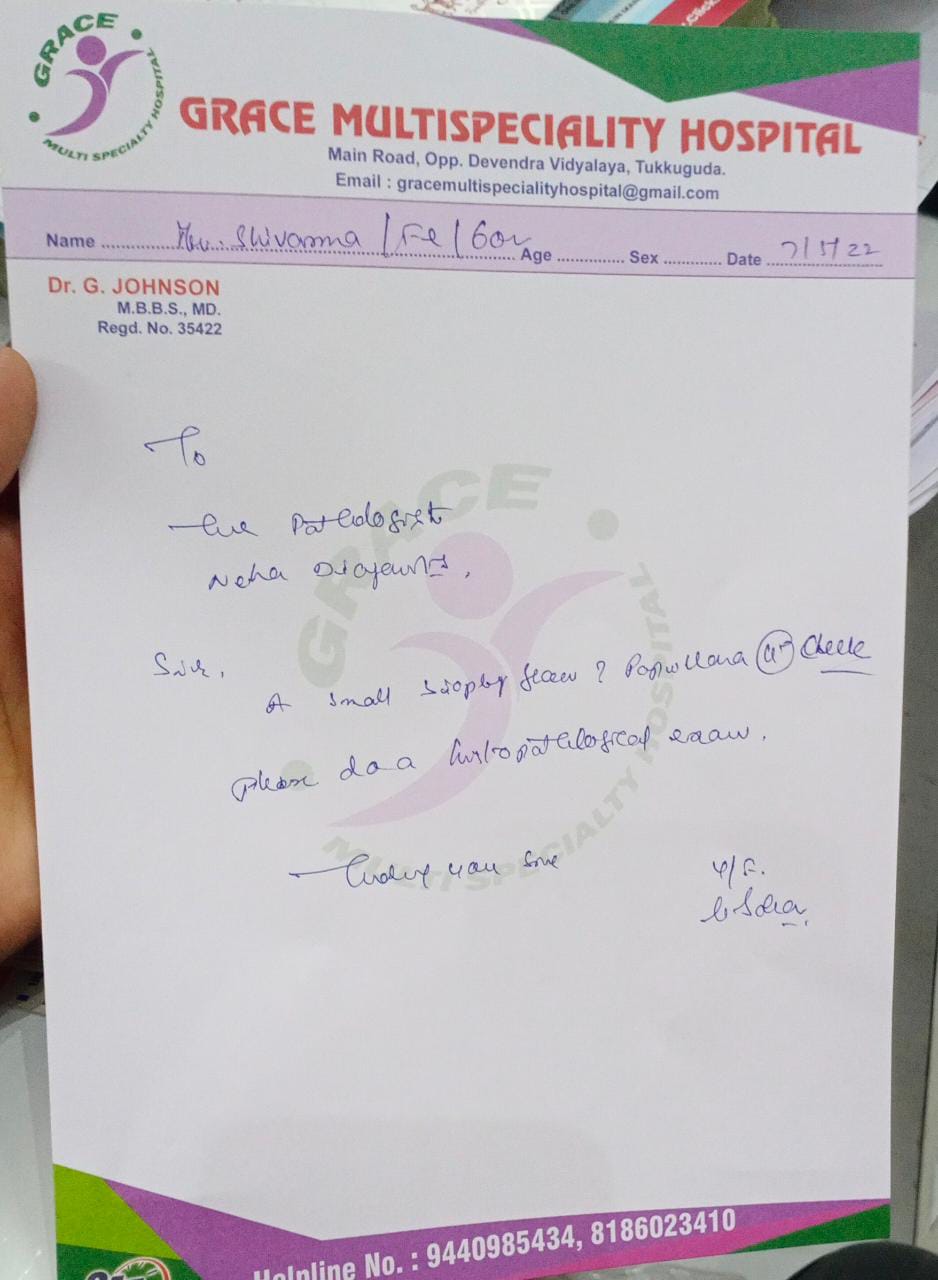 GRACE
MULTI SPECIALITY HOSPITAL
GRACE MULTISPECIALITY HOSPITAL
Main Road, Opp. Devendra Vidyalaya, Tukkuguda.
Email : gracemultispecialityhospital@gmail.com
Name Shivamma / Fe / 60y Age Sex Date 7/5/22
Dr. G. JOHNSON
M.B.B.S., MD.
Regd. No. 35422
To
The Pathologist
Neha
Sir,
A small ? Papilloma Cheek
Please do a histopathological exam.
Thank you Sir
GRACE
MULTI SPECIALTY HOSPITAL
Helpline No. : 9440985434, 8186023410